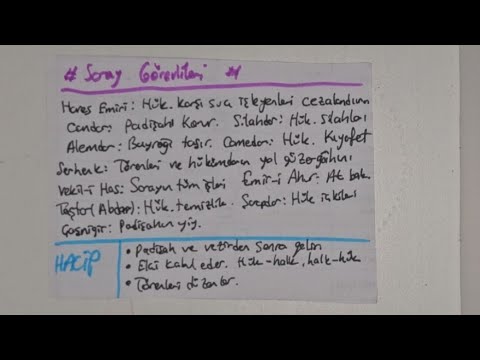 # Saray Görevlileri #
Hares Emiri: Hük. karşı suç işleyenleri cezalandırır
Candar: Padişahı Korur. Silahdar: Hük. Silahları
Alemdar: Bayrağı taşır. Camedar: Hük. Kıyafet
Serhenk: Törenleri ve hükümdarın yol güzergahını
Vekil-i Has: Sarayın tüm işleri Emir-i Ahur: At bak.
Taştar (Abdar): Hük. temizlik. Şarapdar: Hük içkileri
Çaşnigir: Padişahın yiy.
HACİP
• Padişah ve vezirden sonra gelir
• Elçi kabul eder. Hük-halk, halk-hük
• Törenleri düzenler.